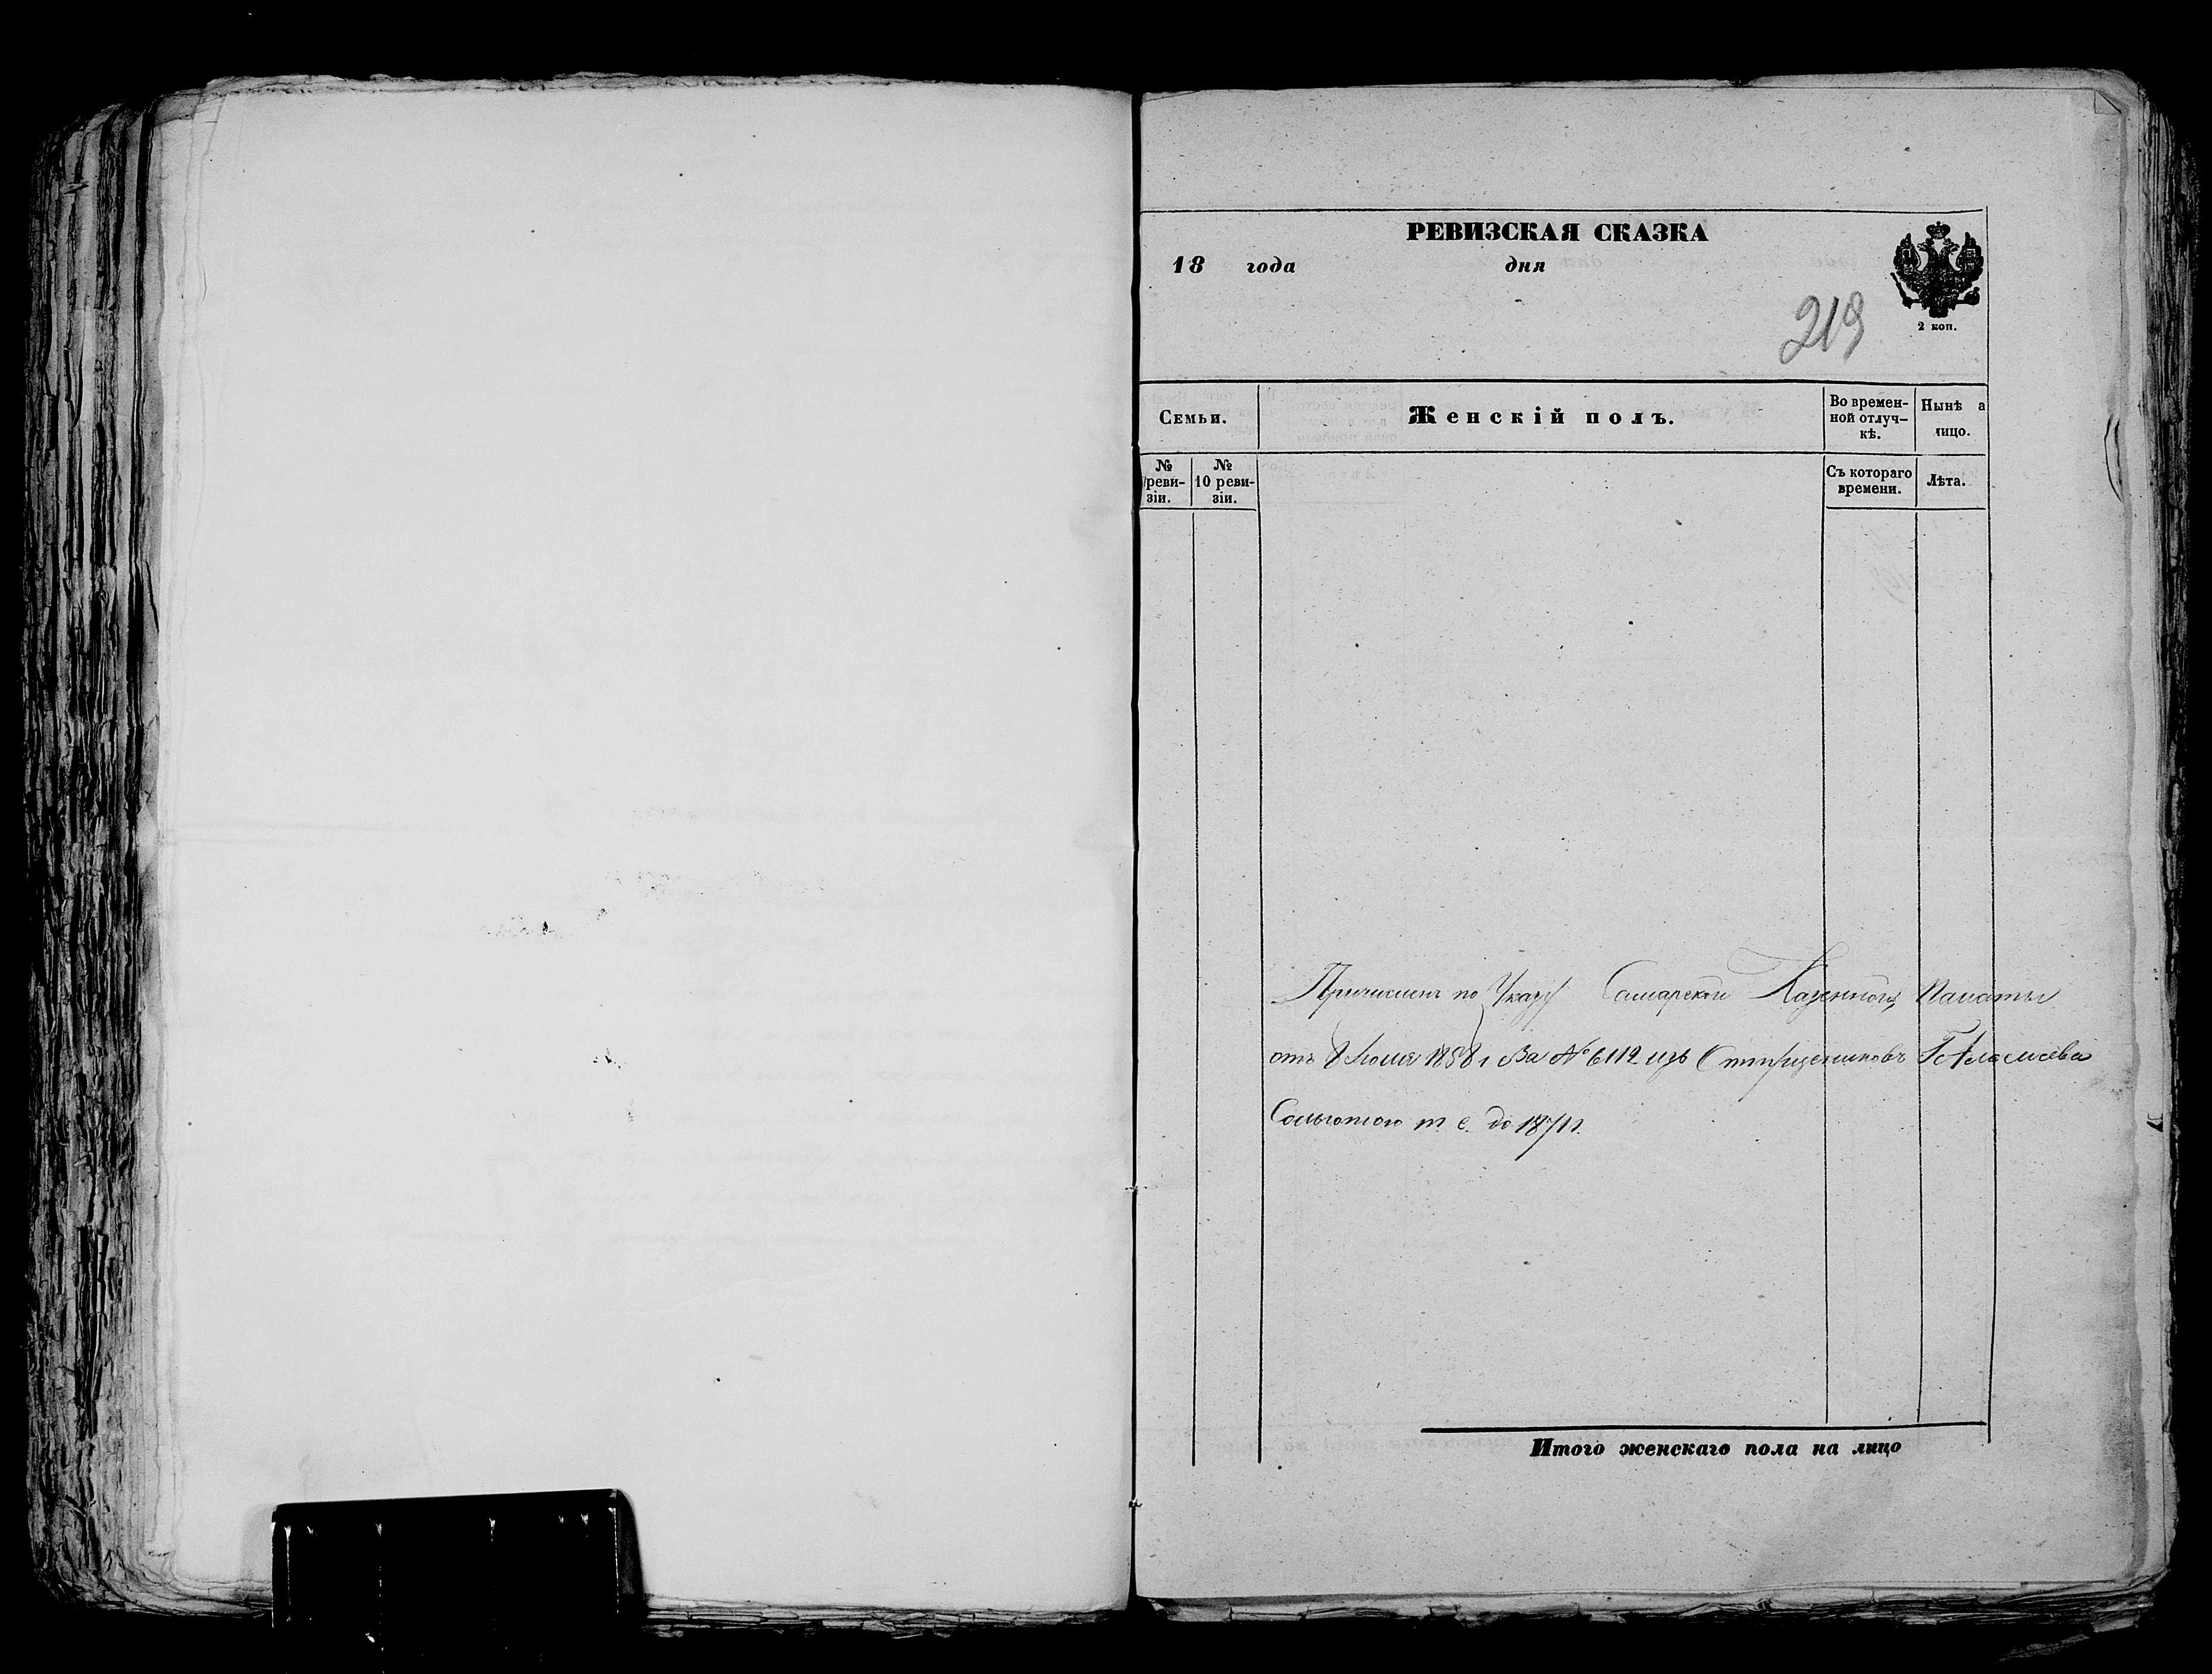 РЕВИЗСКАЯ СКАЗКА
18 года дня
219
2 коп.
Семьи.
Женскій полъ.
Во времен-
ной отлуч-
кѣ.
Нынѣ а
лицо.
№
реви-
зіи.
№
10 реви-
зіи.
Съ котораго
времени.
Лѣта.
Причисленъ по Указу Самарской Казенной Палаты
отъ 8 Іюля 1858 г За № 6112 изъ
Сольготою т. е. до 1871г.
Итого женскаго пола на лицо